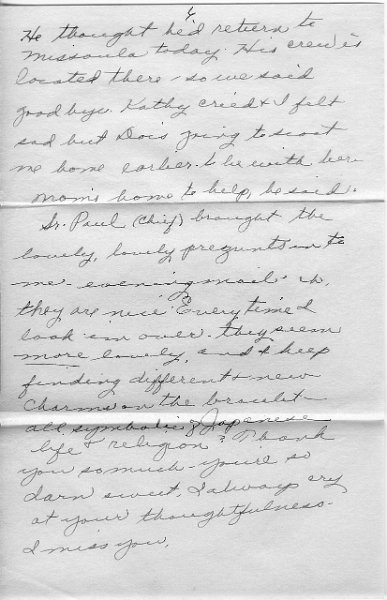 4
He thought he'd return to
Missoula today. His crew is
located there - so we said
goodbye. Kathy cried & I felt
sad but Doc is going to scoot
me home earlier. to be with her.
Mom's home to help, he said.
Sr. Paul (Chief) brought the
lovely, lovely presunts in to
me - evening mail.
they are nice. Everytime I
look 'em over. they seem
more lovely, and I keep
finding different & new
charms on the bracelet -
all symbolic of Japenese
life & religion? Thank
you so much - you're so
darn sweet. I always cry
at your thoughtfulness.
I miss you.